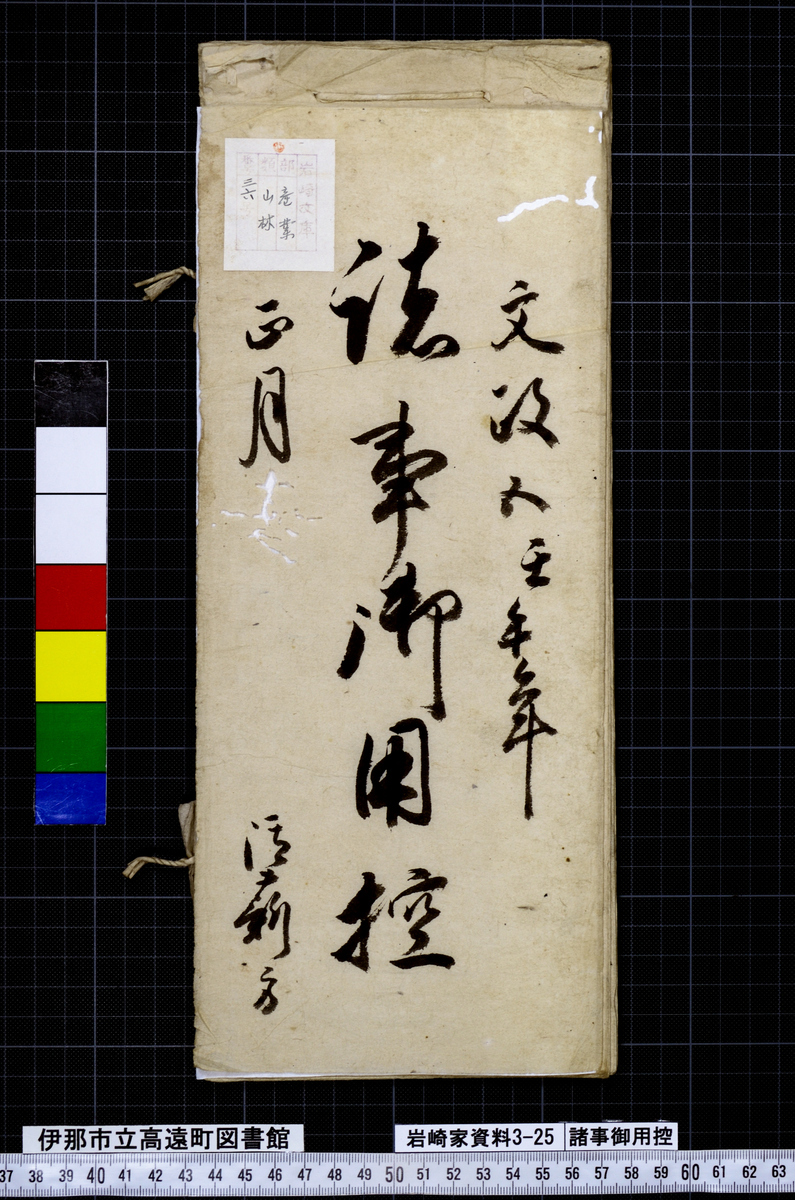 文政五壬午年
諸事御用控
正月
方
岩崎文庫
部 産業
類 山林
三六
伊那市立高遠町図書館
岩崎家資料3-25 諸事御用控
37 38 39 40 41 42 43 44 45 46 47 48 49 50 51 52 53 54 55 56 57 58 59 60 61 62 63